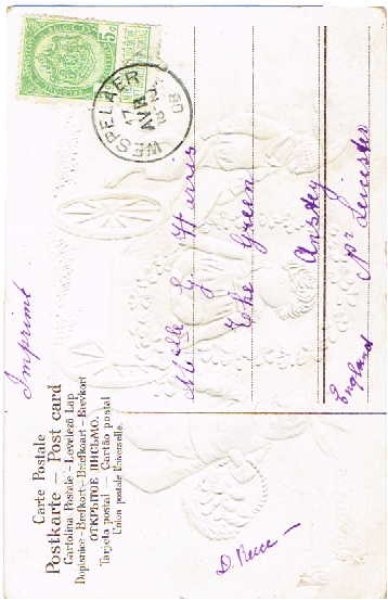 5c
WESPELAER
17
AVR
08
Imprimé
Carte Postale
Postkarte — Post card
Cartolina Postale – Levelező Lap
Dopisnice – Brefkort – Briefkaart – Brevkort
ОТКРЫТОЕ ПИСЬМО.
Tarjeta postal — Cartão postal
Union postale Universelle.
Mlle G. Harris
The Green
Anstey
Nr Leicester
England